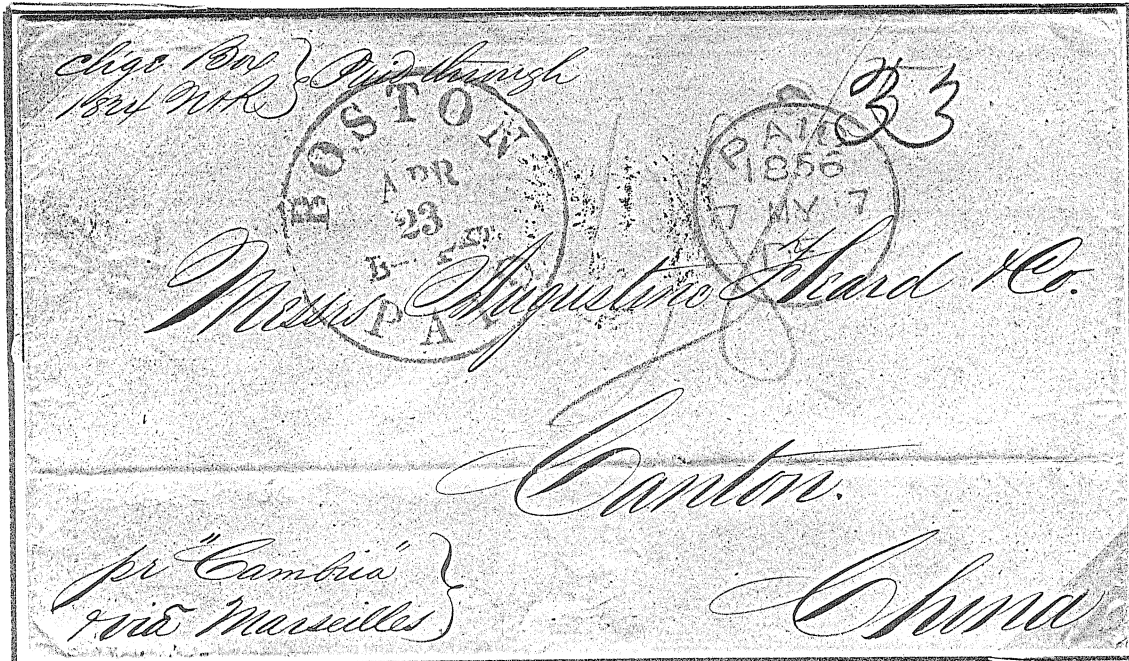 chge Box } Paid through
1824 N.Y.
33
BOSTON
APR
23
PAID
PAID
1856
7 MY 7
Messrs Augustine Heard & Co.
Canton.
China
pr "Cambria" }
via Marseilles